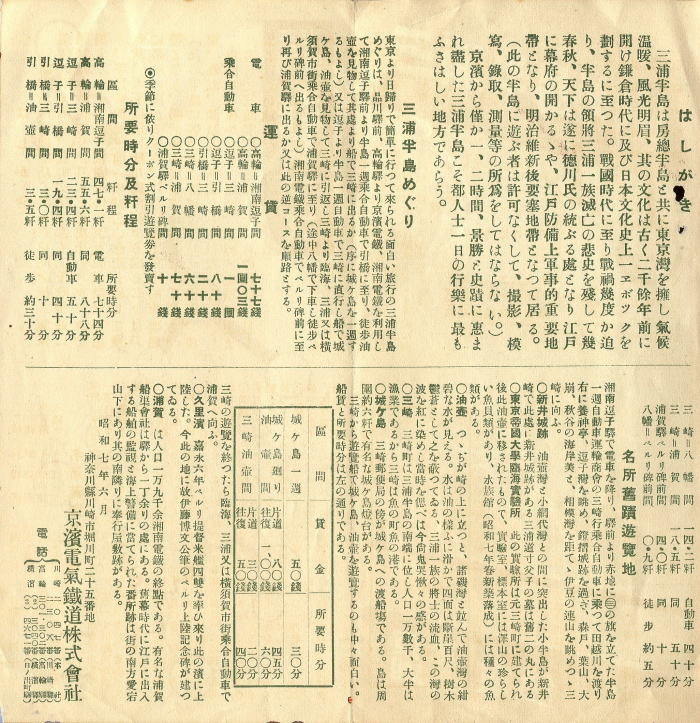 はしがき
三浦半島は房總半島と共に東京灣を擁し氣候
温暖、風光明眉、其の文化は古く二千餘年前に
開け鎌倉時代に及び日本文化史上一エポックを
劃するに至つた。戰國時代に至り戰禍幾度か迫
り、半島の領將三浦一族滅亡の悲史を殘して幾
春秋、天下は遂に德川氏の統ぶる處となり江戸
に幕府の開かるゝや、江戸防備上軍事的重要地
帶となり、明治維新後要塞地帶となつて居る。
(此の半島に遊ぶ者は許可なくして、撮影、模
寫、錄取、測量等の所爲をしてはならない。)
京濱から僅か一、二時間、景勝と史蹟に惠ま
れ盡した三浦半島こそ都人士一日の行樂に最も
ふさはしい地方であらう。
三浦半島めぐり
東京より日歸りで簡單に行つて來られる面白い旅行の三浦半島
めぐりは、品川驛前、高輪驛より京濱電鐵、湘南電鐵を利用し
て湘南逗子驛前より半島一週乘合自動車で引橋に至り、徒歩油
壺を見物して其處より船で三崎に出るか(序に城ケ島を一週す
るもよし)又は逗子より半島一週自動車で三崎に直行し船で城
ケ島、油壺を見物して三崎に引返し三崎より臨海、三浦又は横
須賀市街乘合自動車で浦賀驛に至り(途中八幡で下車し徒歩ペ
ルリ碑前へ出るもよし)湘南電鐵乘合自動車でペルリ碑前に至
り再び浦賀驛に出るか又は此の逆コースを順路とする。
運賃
電車 ◇高輪=湘南逗子間 七十七錢
◇高輪=浦賀間 一圓〇三錢
乘合自動車 ◇逗子=三崎間 一圓
◇逗子=引橋間 八十錢
◇引橋=三崎間 二十錢
◇三崎=八幡間 六十錢
◇三崎=浦賀間 七十錢
◇浦賀驛=ペルリ碑間 十錢
◎季節に依りクーポン式割引遊覽券を發賣す
所要時分及粁程
區間 粁程 所要時分
高輪=湘南逗子間 四七・一粁 電車 七十四分
高輪=浦賀間 五五・六粁 同 八十八分
逗子=三崎間 二三・四粁 自動車 五十分
逗子=引橋間 一九・四粁 同 四十分
引橋=三崎間 三・〇粁 同 十分
引橋=油壺間 三・五粁 徒歩 約三十分
三崎=浦賀間 一四・二粁 自動車 四十分
浦賀驛=ペルリ碑前間 二・一粁 同 十分
八幡=ペルリ碑前間 〇・九粁 徒歩 約五分
名所舊蹟遊覽地
湘南逗子驛で電車を降り、驛前より赤地に㊂の旗を立てた半島
一週自動車運輸商會の三崎行乘合自動車に乘つて田越川を渡り
右に養神亭、逗子灣を眺め、鐙摺城跡を過ぎ、森戸、葉山、大
崩、秋谷の海岸美と、相模灣を距てゝ伊豆の連山を眺めつゝ三
崎に向ふ。
◇新井城跡 油壺灣と小網代灣との間に突出した小半島が新井
崎で此處に新井城跡がある三浦道寸父子の墓は舊二の丸にある
◇東京帝國大學臨海實驗所 此の實驗所は元三崎町に建てられ
後此油壺に移されたもので、實驗室、標本室には深山の珍らし
い魚貝類があり、水族館(昭和七年春新築落成)には種々の魚
類がある。
◇油壺 つゝぢが崎の上に立つと、諸磯灣と竝んで油壺灣の紺
碧な水が見える。水は油の樣に滑かで四面は斷崖百尺、樹木
鬱蒼としてゐる。三浦一族の將士の流した血で此の灣の
波を紅に染めた當時を偲べば今尚鬼哭愀々の感がある。
◇三崎 三崎町は三浦半島の南端に位し人口一万數千、大半は
漁業であるから三崎は魚の町魚の港である。
◇城ケ島 三崎郵便局の傍が城ケ島への渡船場である。島は周
圍約六粁で有名な城ケ島燈台がある。
三崎から遊覽船で城ケ島、油壺を遊覽するのも中々面白い。
船賃と所要時分は左の通りである。
區間 賃金 所要時分
城ケ島一週 五〇錢 三〇分
城ケ島廻り油壺間 片道 八〇錢
往復 一、〇〇錢 六〇分
三崎油壺間 片道 三〇錢
往復 五〇錢 四〇分
三崎の遊覽を終つたら臨海、三浦又は横須賀市街乘合自動車で
浦賀へ向ふ。
◇久里濱 嘉永六年ペルリ提督米艦四隻を率ひ來り此の濱に上
陸した。今此の地に故伊藤博文公筆のペルリ上陸紀念碑が建つ
てゐる。
◇浦賀 は人口一万九千余湘南電鐵の終點である。有名な浦賀
船渠會社は驛から一丁余りの處にある。舊幕時代に江戸に出入
する船舶の監視と海上警備に當てられた番所跡は街の南方愛宕
山下にあり其の南隣りに奉行屋敷跡がある。
昭和七年六月
神奈川縣川崎市堀川町二十五番地
京濱電氣鐵道株式會社
電話